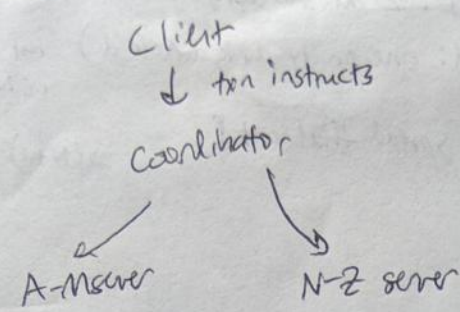 Client
↓ txn instructs
Coordinator
A-M server N-Z server